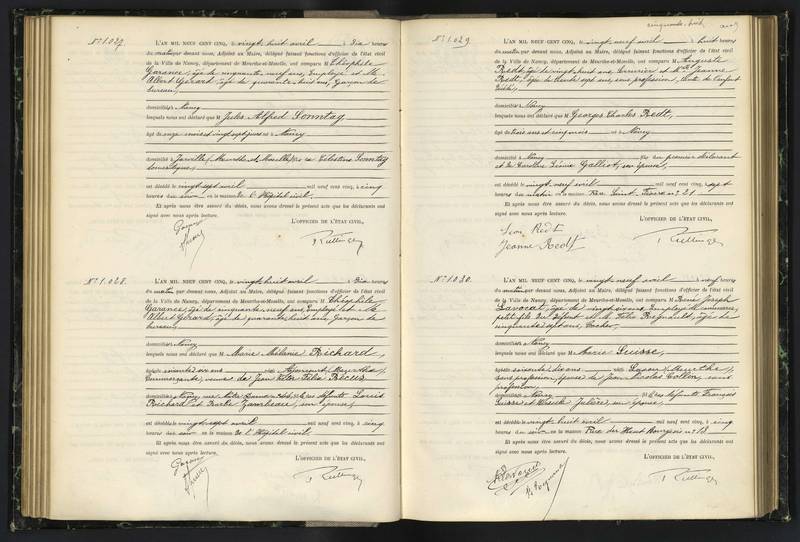 N° 1.027.
L'AN MIL NEUF CENT CINQ, le vingt huit avril à dix heures
du matin par devant nous, Adjoint au Maire, délégué faisant fonctions d'officier de l'état civil
de la Ville de Nancy, département de Meurthe-et-Moselle, ont comparu M Théophile
Garance, âgé de cinquante neuf ans, Employé et M.
Albert Gérard, âgé de quarante huit ans, Garçon de
bureau,
domiciliés à Nancy
lesquels nous ont déclaré que M Jules Alfred Sonntag
âgé de onze mois et vingt sept jours né à Nancy
domicilié à Jarville, Meurthe et Moselle, fils de Célestine Sonntag
domestique,
est décédé le vingt sept avril mil neuf cent cinq, à cinq
heures du soir en la maison de l'Hôpital civil.
Et après nous être assuré du décès, nous avons dressé le présent acte que les déclarants ont
signé avec nous après lecture.
L'OFFICIER DE L'ÉTAT CIVIL,
N° 1.028.
L'AN MIL NEUF CENT CINQ, le vingt huit avril à dix heures
du matin par devant nous, Adjoint au Maire, délégué faisant fonctions d'officier de l'état civil
de la Ville de Nancy, département de Meurthe-et-Moselle, ont comparu M Théophile
Garance, âgé de cinquante neuf ans, Employé et M.
Albert Gérard, âgé de quarante huit ans, Garçon de
bureau,
domiciliés à Nancy
lesquels nous ont déclaré que M Marie Mélanie Richard,
âgée soixante ans née
veuve de Jean
domiciliée à Nancy, fille des défunts Louis
Richard et Barbe son épouse,
est décédée le vingt sept avril mil neuf cent cinq, à cinq
heures du soir en la maison de l'Hôpital civil
Et après nous être assuré du décès, nous avons dressé le présent acte que les déclarants ont
signé avec nous après lecture.
L'OFFICIER DE L'ÉTAT CIVIL,
cinquante-huit
N° 1.029
L'AN MIL NEUF CENT CINQ, le vingt neuf avril à huit heures
du matin par devant nous, Adjoint au Maire, délégué faisant fonctions d'officier de l'état civil
de la Ville de Nancy, département de Meurthe-et-Moselle, ont comparu M Auguste
Redt, âgé de vingt huit ans, et Jeanne
Redt, âgée de trente sept ans, sans profession, tante de l'enfant
domiciliés à Nancy
lesquels nous ont déclaré que M Georges Charles Redt,
âgé de trois ans et cinq mois né à Nancy
domicilié à Nancy fils du premier déclarant
et de Caroline Galliot, son épouse,
est décédé le vingt neuf avril mil neuf cent cinq, à sept
heures du matin en la maison Rue Saint n° 21
Et après nous être assuré du décès, nous avons dressé le présent acte que les déclarants ont
signé avec nous après lecture.
L'OFFICIER DE L'ÉTAT CIVIL,
Jeanne Redt
N° 1030.
L'AN MIL NEUF CENT CINQ, le vingt neuf avril à neuf heures
du matin par devant nous, Adjoint au Maire, délégué faisant fonctions d'officier de l'état civil
de la Ville de Nancy, département de Meurthe-et-Moselle, ont comparu M René Joseph
Lavocat, âgé de vingt ans, Employé de commerce,
petit fils du défunt et M. Félix Regnault, âgé de
cinquante sept ans,
domiciliés à Nancy
lesquels nous ont déclaré que M Marie Suisse,
âgée soixante dix ans née (Meurthe)
sans profession, épouse de Jean Nicolas Collin, sans
profession,
domiciliée à Nancy fille des défunts François
Suisse et son épouse,
est décédée le vingt huit avril mil neuf cent cinq, à cinq
heures du soir en la maison Rue du Haut Bourgeois n° 18
Et après nous être assuré du décès, nous avons dressé le présent acte que les déclarants ont
signé avec nous après lecture.
L'OFFICIER DE L'ÉTAT CIVIL,